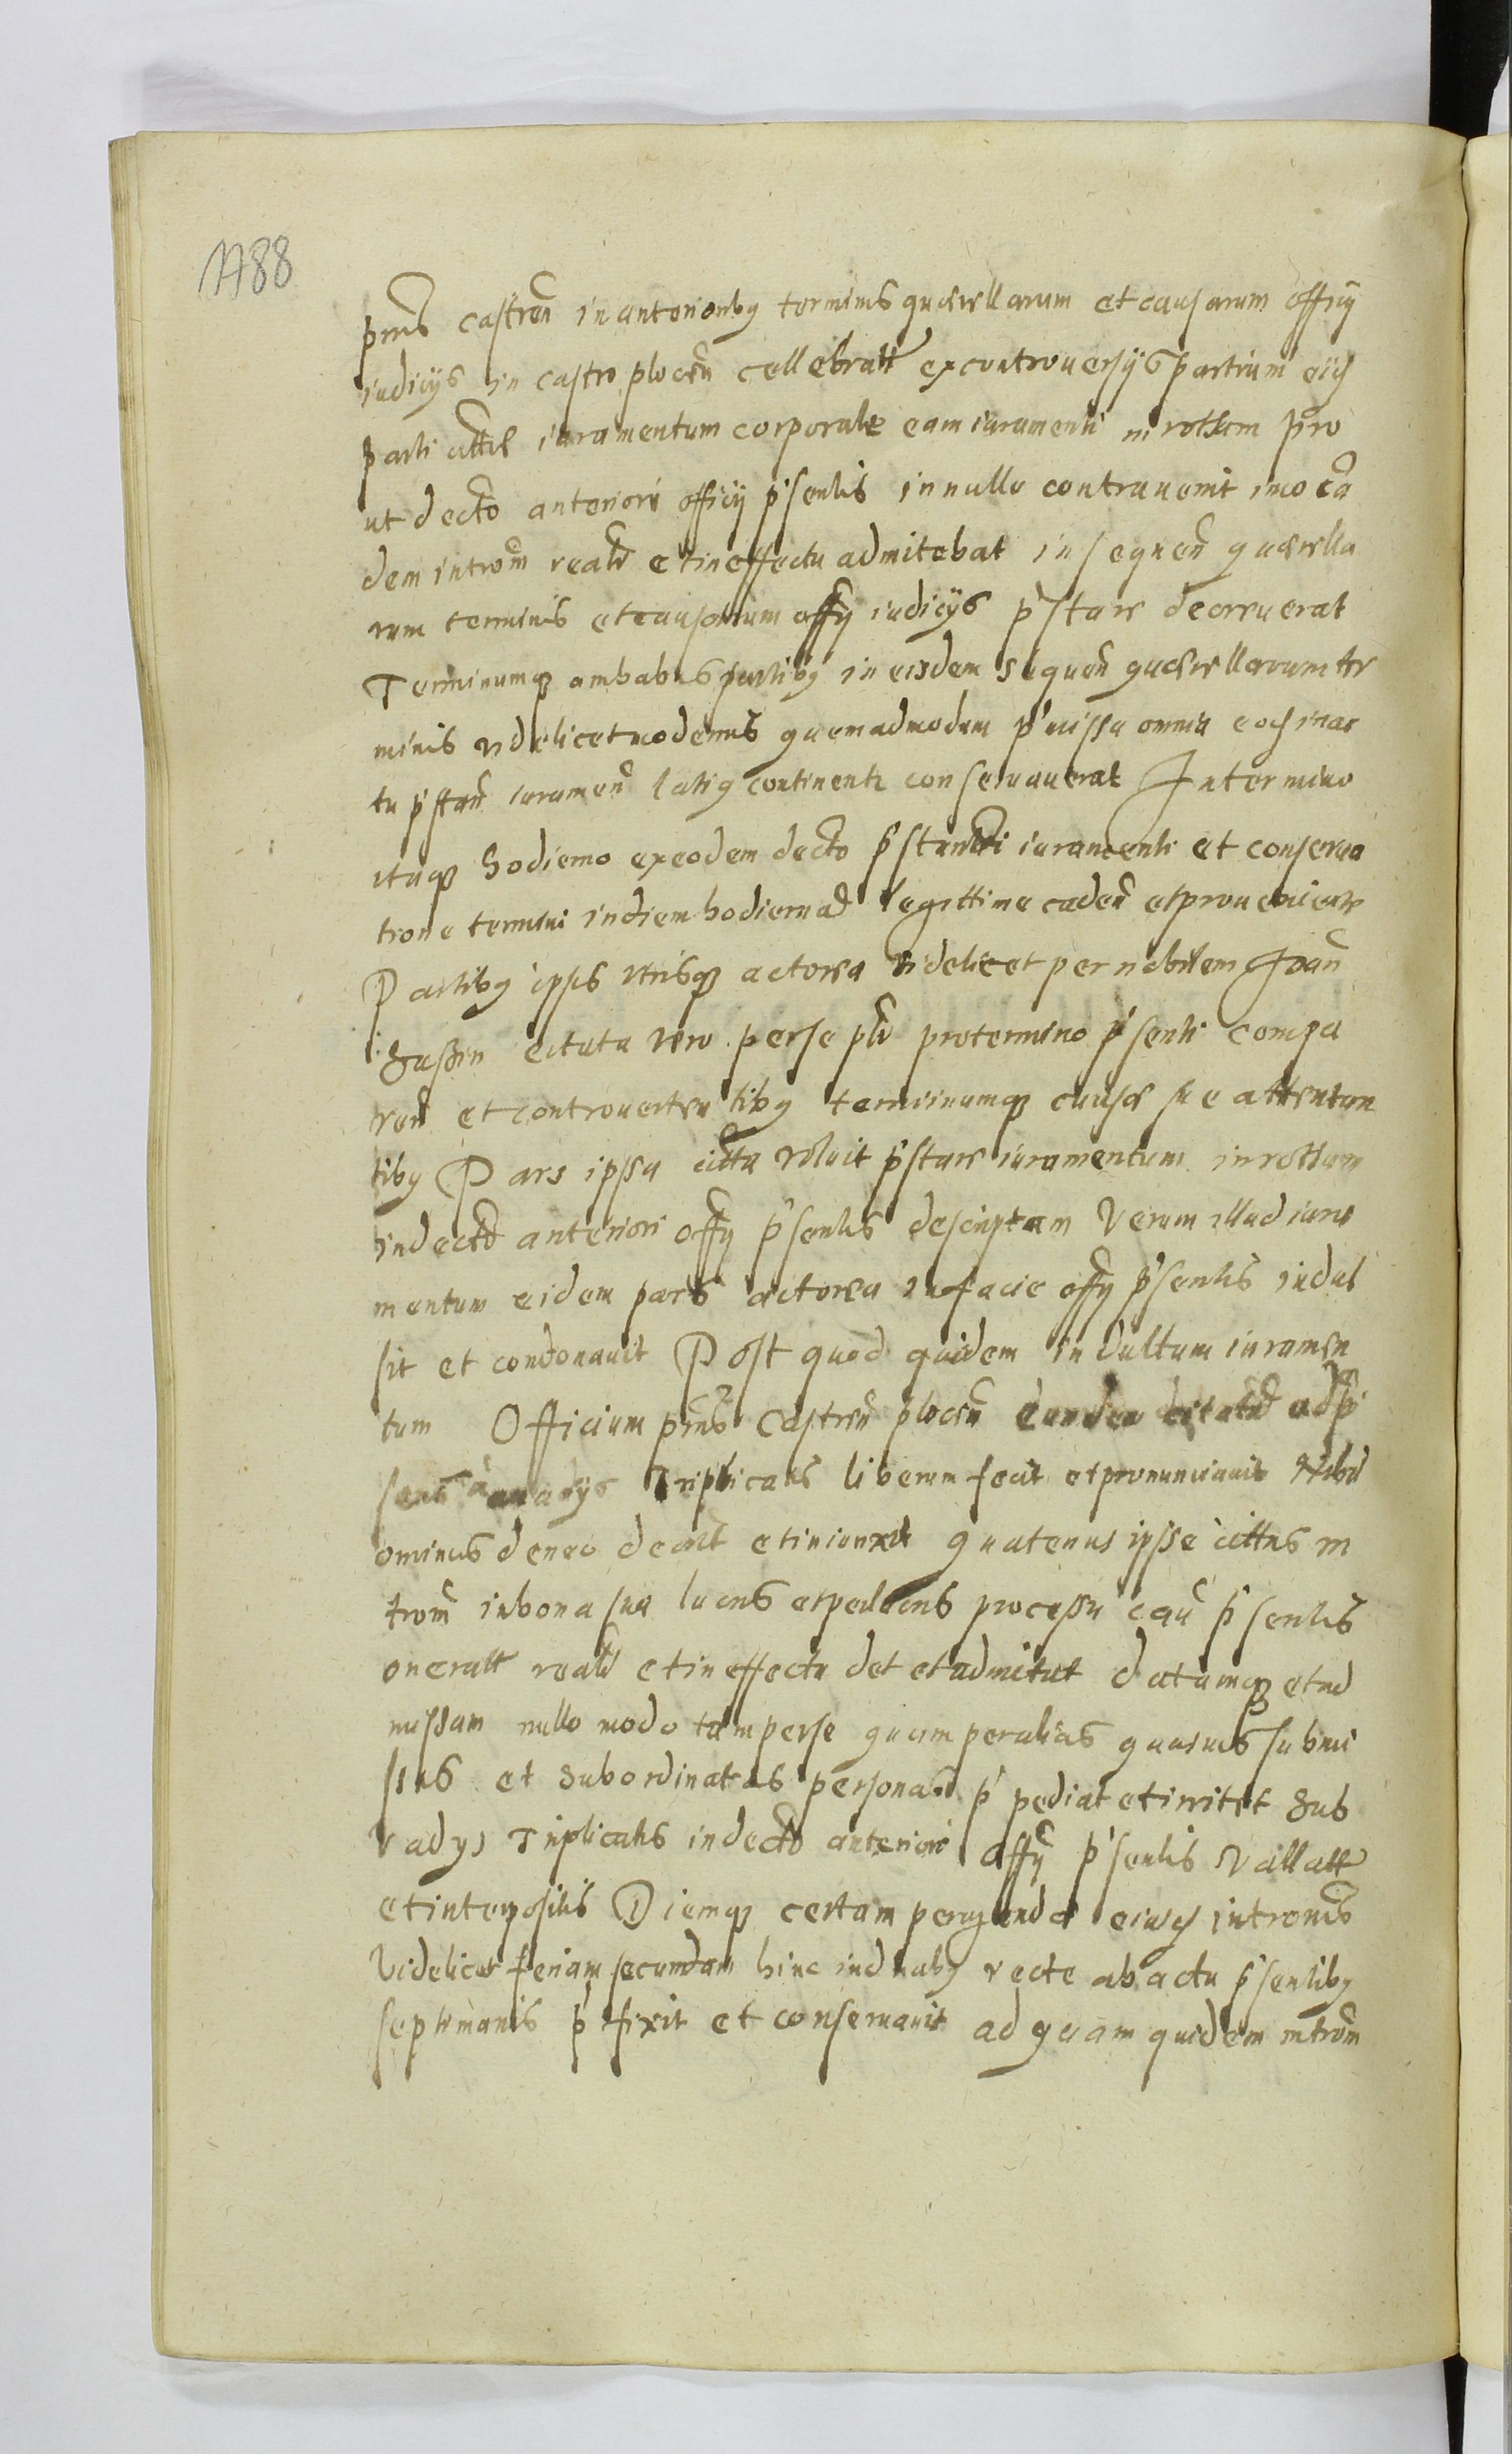 1788
pns Castren in anterioribq terminis quaerellarum et causarum officij
iudicijs in castro plocen cellebratt ex controuersijs partium eisd
parti citatae iuramentum corporale eam iuramenti in rottam pro
ut decto anteriori officij p'sentis in nullo contrauenit imo ea
dem introm realr et in effectu admitebat in sequen quaerella
rum terminis et causarum offij iudicijs p'stare decreuerat
Terminumq ambabus partibq in eisdem sequen quaerellarum ter
minis videlicet modernis quemadmodum p'missa omnia eosd in ac
tu p'stan iuramen latiq continenti conseruauerat In termino
itaq hodierno ex eodem decto p'standi iuramenti et conserua
tione termini in diem hodiernad legittime caden et proueniente
Partibq ipsis vtrisq actorea videlicet per nobilem Joan
citata vero per se plr pro termino p'senti compa
ren et controuerten tibq terminumq causae suae attentan
tibq Pars ipsa citta voluit p'stare iuramentum in rottam
in decto anteriori offij p'sentis descriptam Verum illud iura
mentum eidem pars actorea in facie offij p'sentis indul
sit et condonauit Post quod quidem indultum iuramen
tum Officium pns Castren plocen eundem citatum ad p'
sens a vadijs Triplicatis liberum fecit et pronunciauit Nihil
ominus de neo decreuit et iniunxit quatenus ipse cittus in
trom in bona sua lucris et pedaeis processu cau p'sentis
oneratt realr et in effectu det et admitat datamq et ad
missam nullo modo tam per se quam per alias quasuis submi
ssas et subordinatas personas p'pediat et irritet Sub
vadys Triplicatis in decto anteriori offij p'sentis Vallatt
et interpositis Diemq certam peragendae eiusd intromis
Videlicet feriam secundam hinc in duabq recte ab actu p'sentibq
septimanis p'fixit et conseruauit ad quam quidem introm